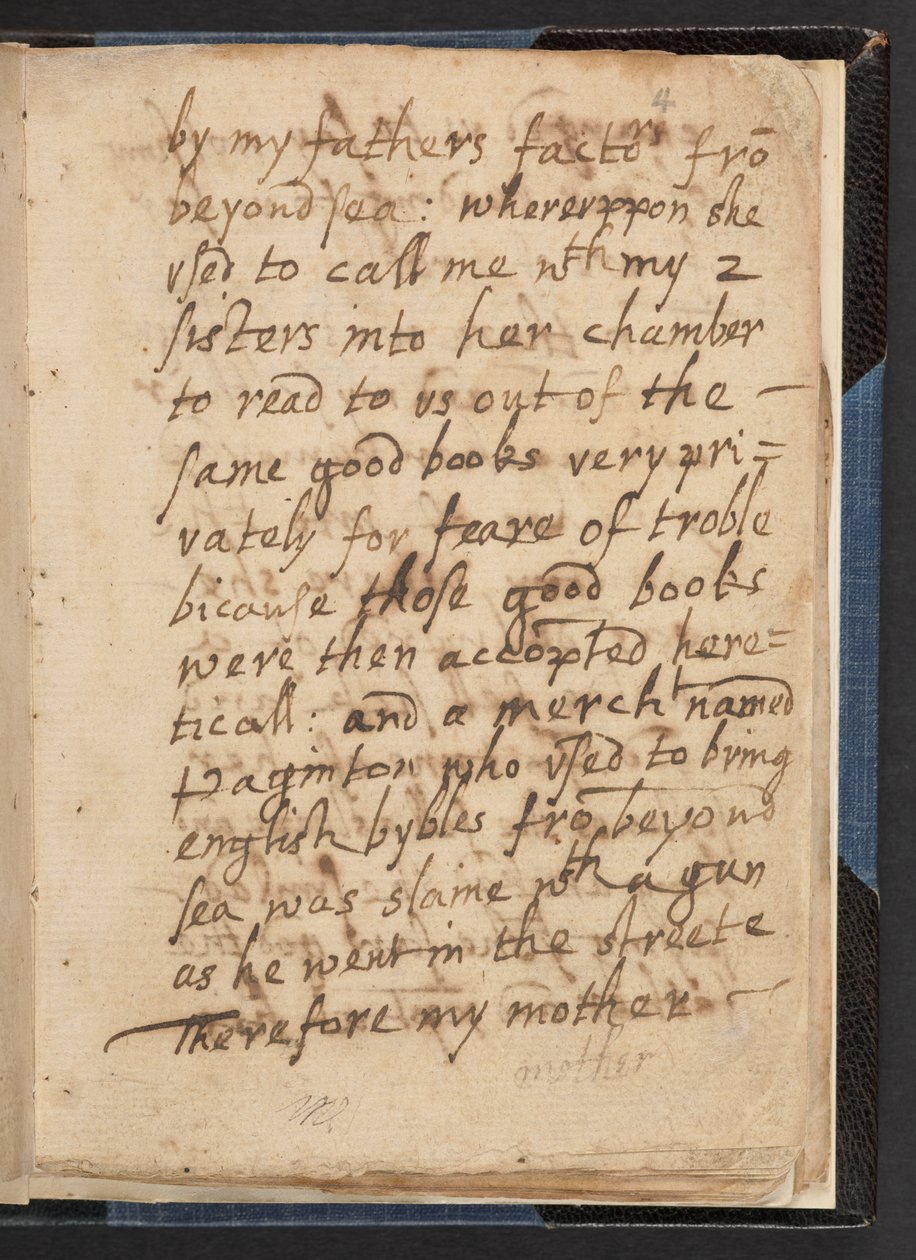 4
by my fathers factors frō
beyond sea: whereuppon she
vsed to call me wth my 2
sisters into her chamber
to read to vs out of the
same good books very pri=
vately for feare of troble
bicause those good books
were then accōpted here=
ticall: and a mercht named
Paginton who vsed to bring
english bybles frō beyond
sea was slaine wth a gun
as he went in the streete
Therefore my mother